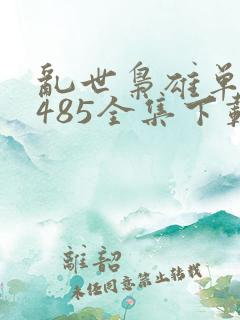 亂世梟雄单
485全集下載
離韶
未经同意禁止转载